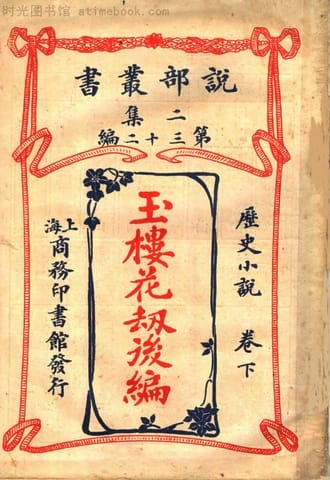 时光图书馆 - atimebook.com
說部叢書
二集
第三十二編
歷史小說 卷下
玉樓花劫後編
上海商務印書館發行